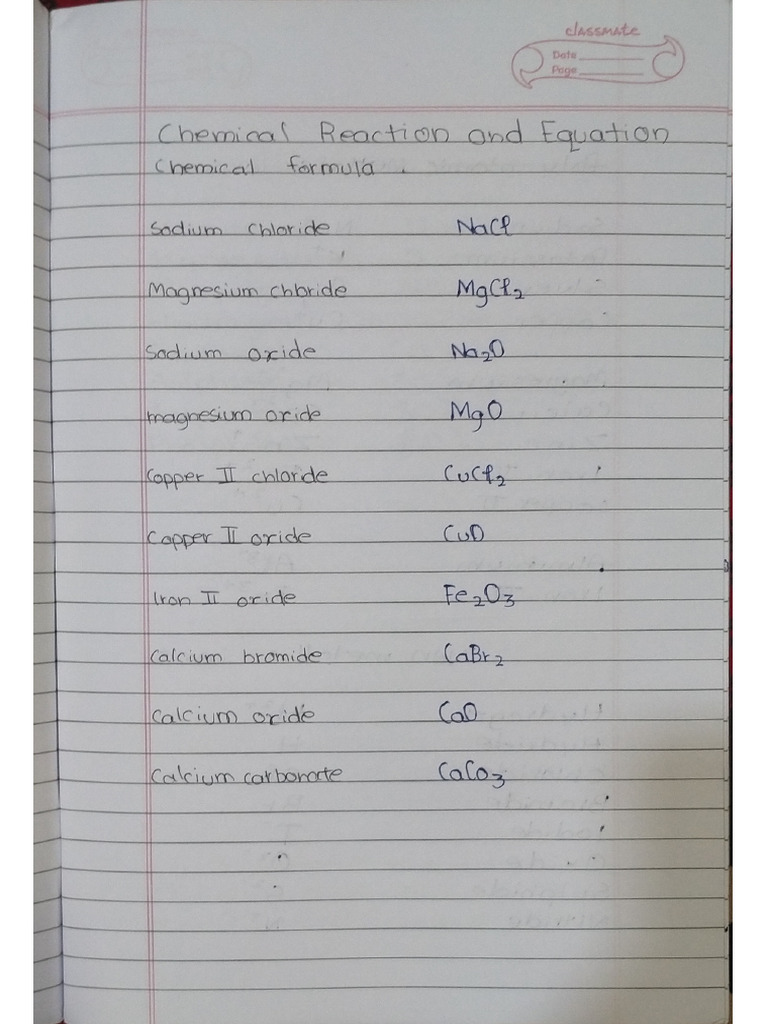 classmate
Date
Page
Chemical Reaction and Equation
Chemical formula.
Sodium chloride NaCl
Magnesium chloride MgCl₂
Sodium oxide Na₂O
magnesium oxide MgO
Copper II chloride CuCl₂
Copper II oxide CuO
Iron II oxide Fe₂O₃
Calcium bromide CaBr₂
Calcium oxide CaO
Calcium carbonate CaCo₃